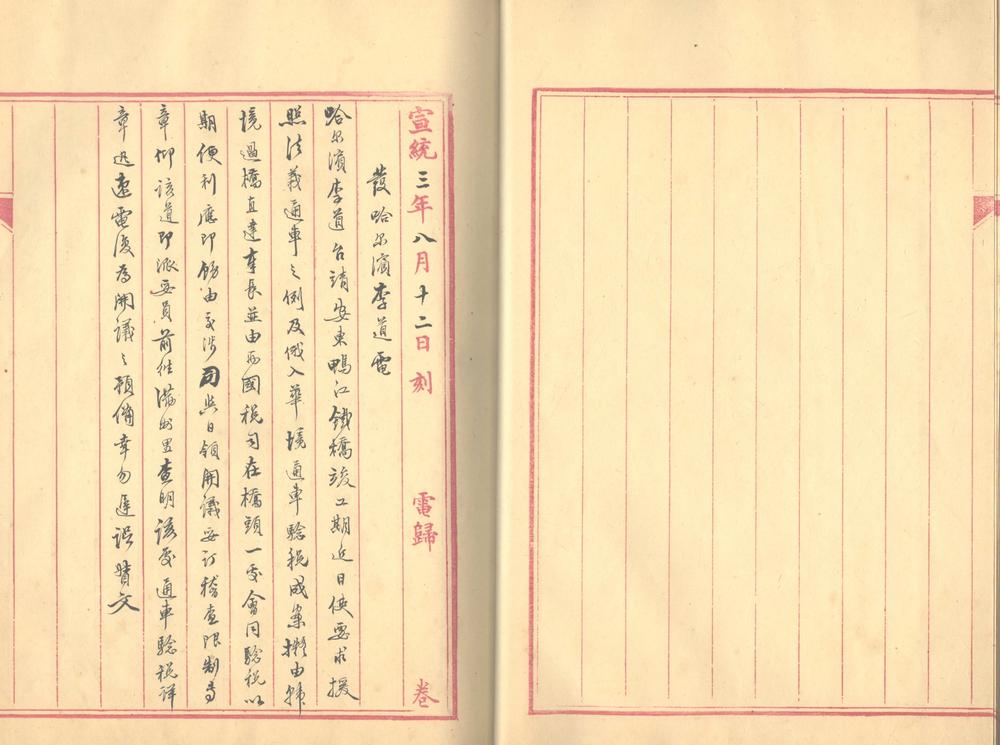 宣統三年八月十二日刻 電歸 卷
發哈尔濱李道電
哈尔濱李道台請安東鴨江鐵橋竣工期近日使要求援
照法義通車之例及俄入華境通車驗稅成案擬由韓
境過橋直達奉長並由兩國稅司在橋頭一處會同驗稅以
期便利應即飭由交涉司與日領開議妥訂稽查限制專
章仰該道即派委員前往滿洲里查明該處通車驗稅詳
章迅速電復為開議之預備幸勿遲誤贊文